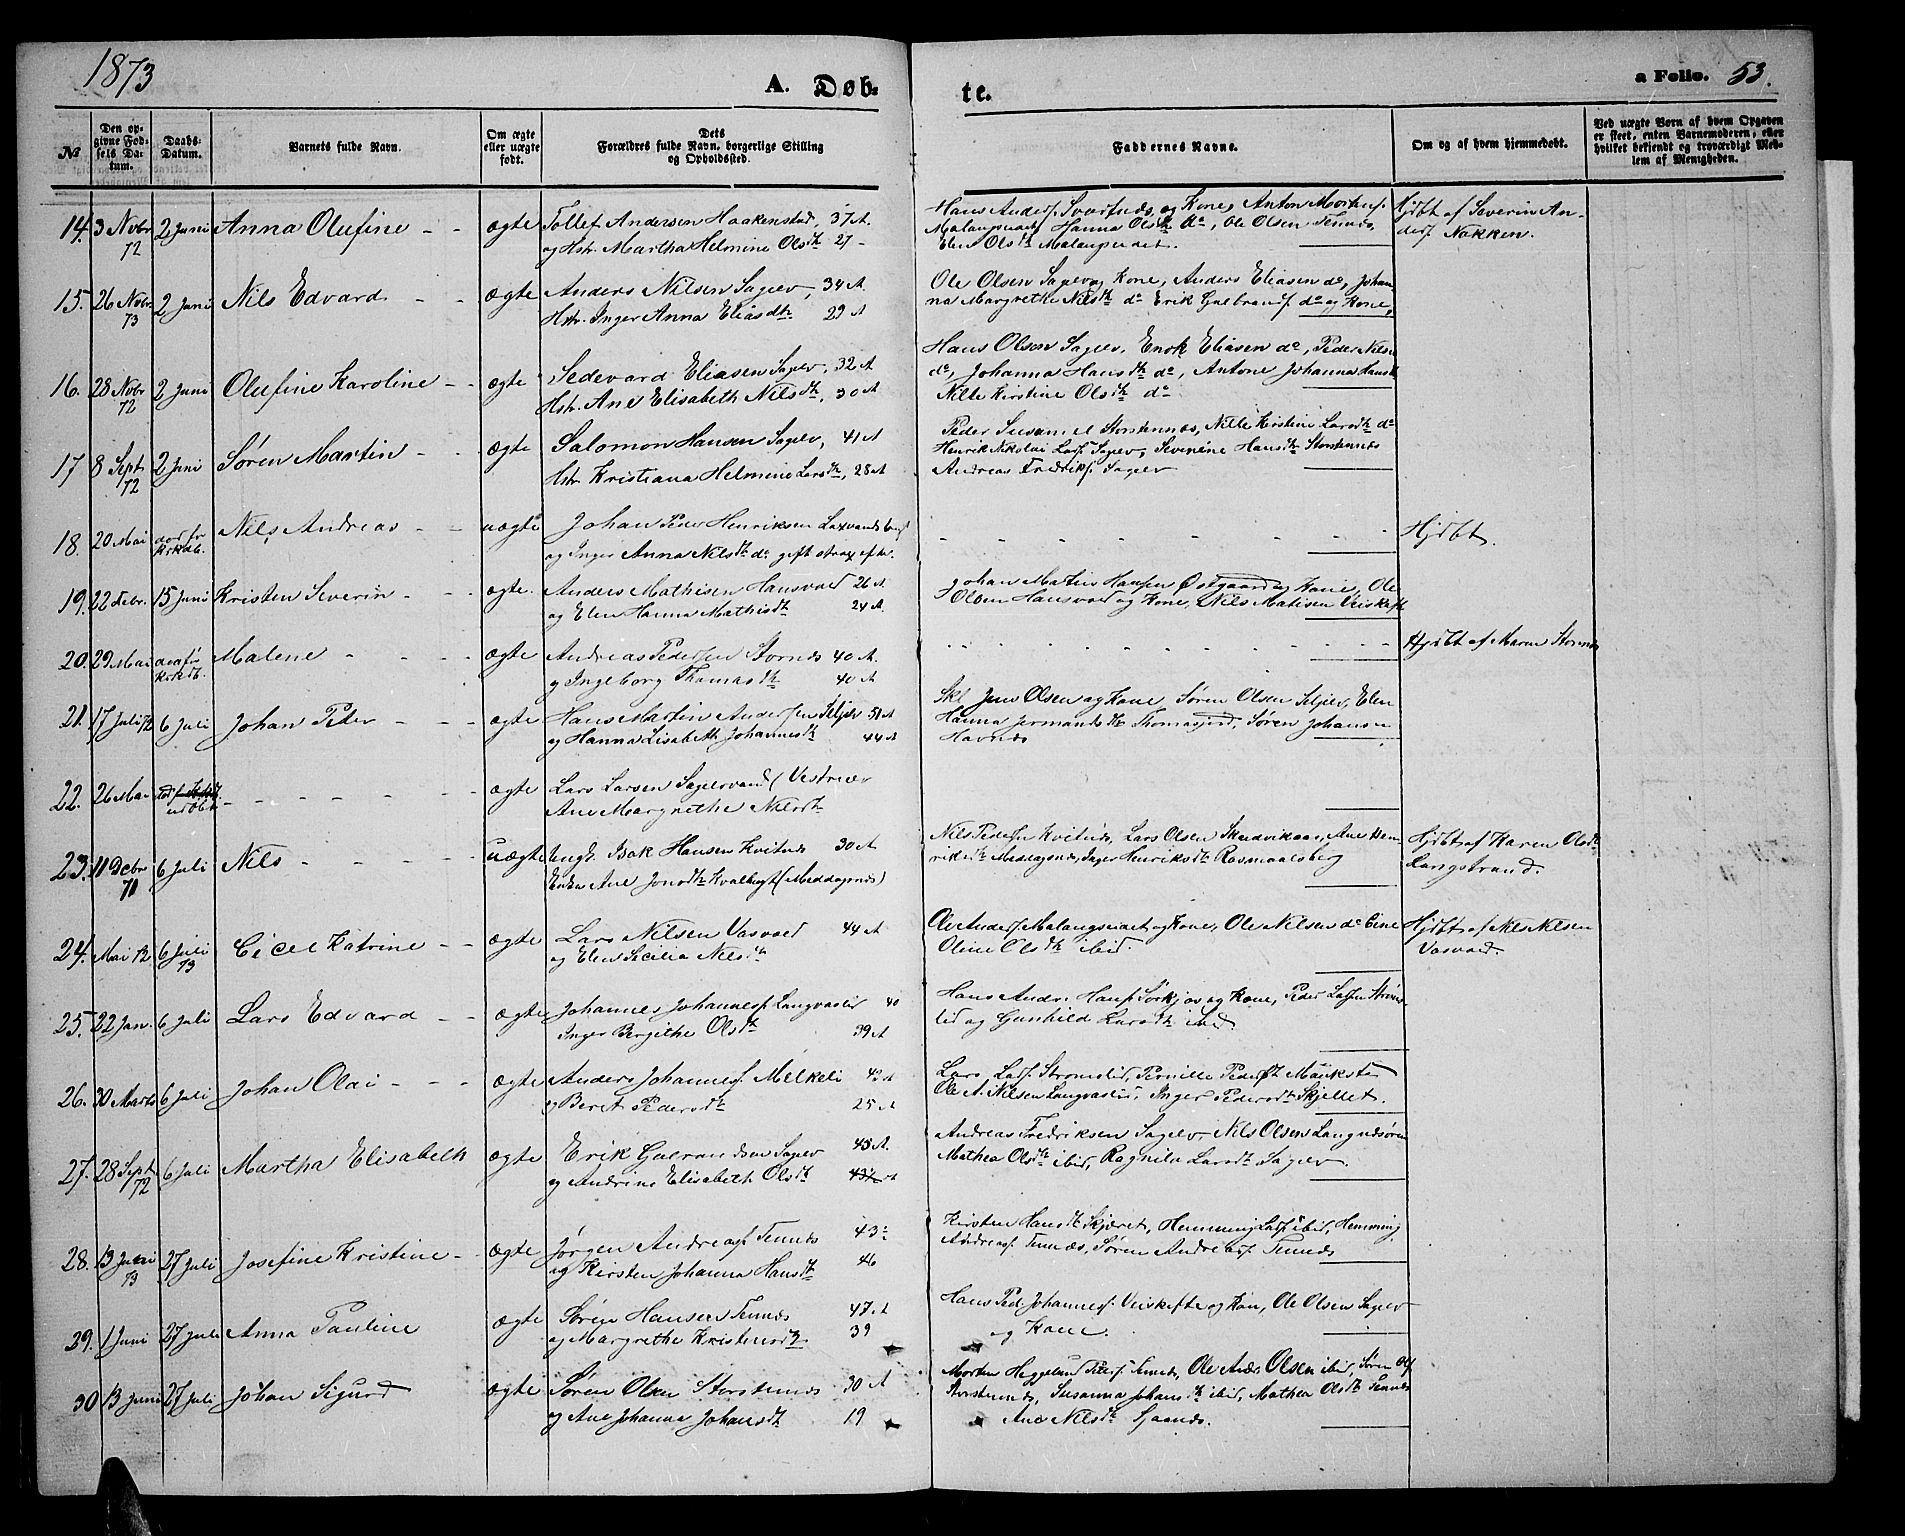 1873
A. Døb-
te.
a Folio. 53.
№
Den op-
givne Fød-
sels Da-
tum.
Daabs-
Datum.
Barnets fulde Navn.
Om ægte
eller uægte
født.
Dets
Forældres fulde Navn, borgerlige Stilling
og Opholdssted.
Faddernes Navne.
Om og af hvem hjemmedøbt.
Ved uægte Børn af hvem Opgaven
er skeet, enten Barnemoderen, eller
hvilket bekjendt og troværdigt Med-
lem af Menigheden.
14. 3 Novbr 72 2 Juni Anna Olufine - - ægte Tollef Andersen Haakenstad, 37 A
og Hstr. Martha Helmine Olsdtr 27 -
Hans Anders. og Kone, Anton Mortens.
Malangseidet, Hanna Olsdtr do, Ole Olsen Tennes,
Elen Olsdtr Malangseidet.
Hjdbt af Severin An-
ders. Nakken.
15. 26 Novbr 73 2 Juni Nils Edvard - - ægte Anders Nilsen Sagelv, 34 A
Hstr. Inger Anna Eliasdtr 29 A
Ole Olsen Sagelv og Kone, Anders Eliasen do, Johan-
na Margrethe Nilsdtr do Erik Gulbrands. do og Kone,
16. 28 Novbr 72 2 Juni Olufine Karoline - - ægte Sedevard Eliasen Sagelv, 32 A
Hstr. Ane Elisabeth Nilsdtr, 30 A
Hans Olsen Sagelv, Enok Eliasen do, Peder Nilsen
do, Johanna Hansdtr do, Antone Johanna Hansdtr
Nille Kirstine Olsdtr do
17 8 Sept 72 2 Juni Søren Martin - - ægte Salomon Hansen Sagelv, 41 A
Hstr Kristiana Helmine Larsdtr, 28 A
Peder Storstennes, Nille Kirstine Larsdtr do
Henrik Nikolai Lars. Sagelv, Severine Hansdtr Storstennes
Andreas Fredriks. Sagelv
18. 20 Mai død før Krkdb. Nils Andreas - - uægte Johan Peder Henriksen
og Inger Anna Nilsdtr do gift strax efter.
Hjdbt.
19. 22 Febr. 15 Juni Kristen Severin - - ægte. Anders Mathisen Hansvold 26 A
og Elen Hanna Mathisdtr 24 A
Johan Martin Hansen Østgaard og Kone, Ole
Olsen Hansvold og Kone, Nils Matisen
20. 29 Mai død før Krkdb. Malene - - - ægte Andreas Pedersen 40 A.
og Ingeborg Thomasdtr 40 A
Hjdbt af Maren
21. 17 Juli 72 6 Juli Johan Peder - - - ægte Hans Martin Andersen Seljelv 51 A
og Hanna Lisabeth Johannesdtr 44 A
Skl Jens Olsen og Kone, Søren Olsen Seljelv, Elen
Hanna Thomasjord, Søren Johansen
Havnnes
22. 26 Mai ud Øbt. - - - - - - ægte Lars Larsen Sagelvvand (
Ane Margrethe Nilsdtr
23. 11 Decbr 71 6 Juli Nils - - - - uægte Ungk. Isak Hansen Kvitnes 30 A
Enke Ane Jonsdtr Kvalbergt (Meddagsnes)
Nils Pedersen Kvitnes, Lars Olsen Ane Hen-
riksdtr Meddagsnes, Inger Henriksdtr Rosmaalsberg
Hjdbt af Karen Olsdtr
Langstrand.
24. Mai 72 6 Juli 73 Cicel Katrine - - ægte Lars Nilsen Vasvold 44 A
og Elen Sicilia Nilsdtr
Ole Anders. Malangseidet og Kone, Ole Nilsen do
Oline Olsdtr ibid.
Hjdbt af Nils Nilsen
Vasvold.
25. 22 Jan. 6 Juli Lars Edvard - - ægte Johannes Johannes. Langvaslid 40
Inger Bergithe Olsdtr 39 A
Hans Andr. Hans. Sørkjos og Kone, Peder Larsen Strøms-
lid og Gunhild Larsdtr ibid
26. 30 Marts 6 Juli Johan Olai - - - ægte Anders Johannes. Melkeli 42 A
og Beret Pedersdtr 25 A
Lars Lars. Strømslid, Pernille Pedersdtr
Ole A. Nilsen Langvaslid, Inger Pedersdtr Skjellet.
27. 28 Sept 72 6 Juli Martha Elisabeth ægte Erik Sagelv 45 A.
og Andrine Elisabeth Olsdtr
Andreas Fredriksen Sagelv, Nils Olsen
Mathea Olsdtr ibid, Ragnila Larsdtr Sagelv.
28. 13 73 27 Juli Josefine Kristine - - ægte Jørgen Andreas. Tennes 43
og Kirsten Johanna Hansdtr 46
Kirsten Hansdtr Skjæret, Hemming Lars. ibid, Hemming
Andreas. Tennes, Søren Andreas. Tennes
29. 1 Juni 27 Juli Anna Pauline ægte Søren Hansen Tennes 47 A
og Margrethe Kristensdtr 39
Hans Ped. Johannes. og Kone, Ole Olsen Sagelv
og Kone.
30 13 Juni 27 Juli Johan Sigurd ægte Søren Olsen Storstennes 30 A
og Ane Johanna Johansdtr 19
Morten Heggelund Peters. Tennes, Ole Andr. Olsen ibid, Søren Ols.
Storstennes, Susanna Johansdtr ibid, Mathea Olsdtr Tennes
Ane Nilsdtr